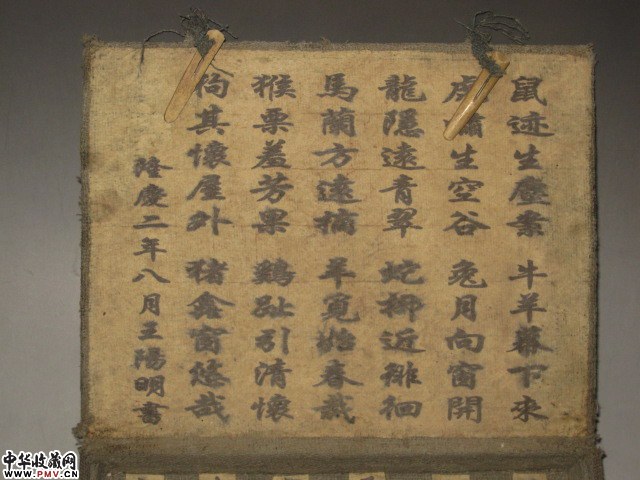 鼠迹生塵案 牛羊暮下來
虎嘯生空谷 兔月向窗開
龍隱遠青翠 蛇柳近徘徊
馬蘭方遠摘 羊寬始春栽
猴栗羞芳果 鷄趾引清懷
狗其懷屋外 猪蠡窗悠哉
隆慶二年八月王陽明書
中华收藏网
WWW.PMV.CN